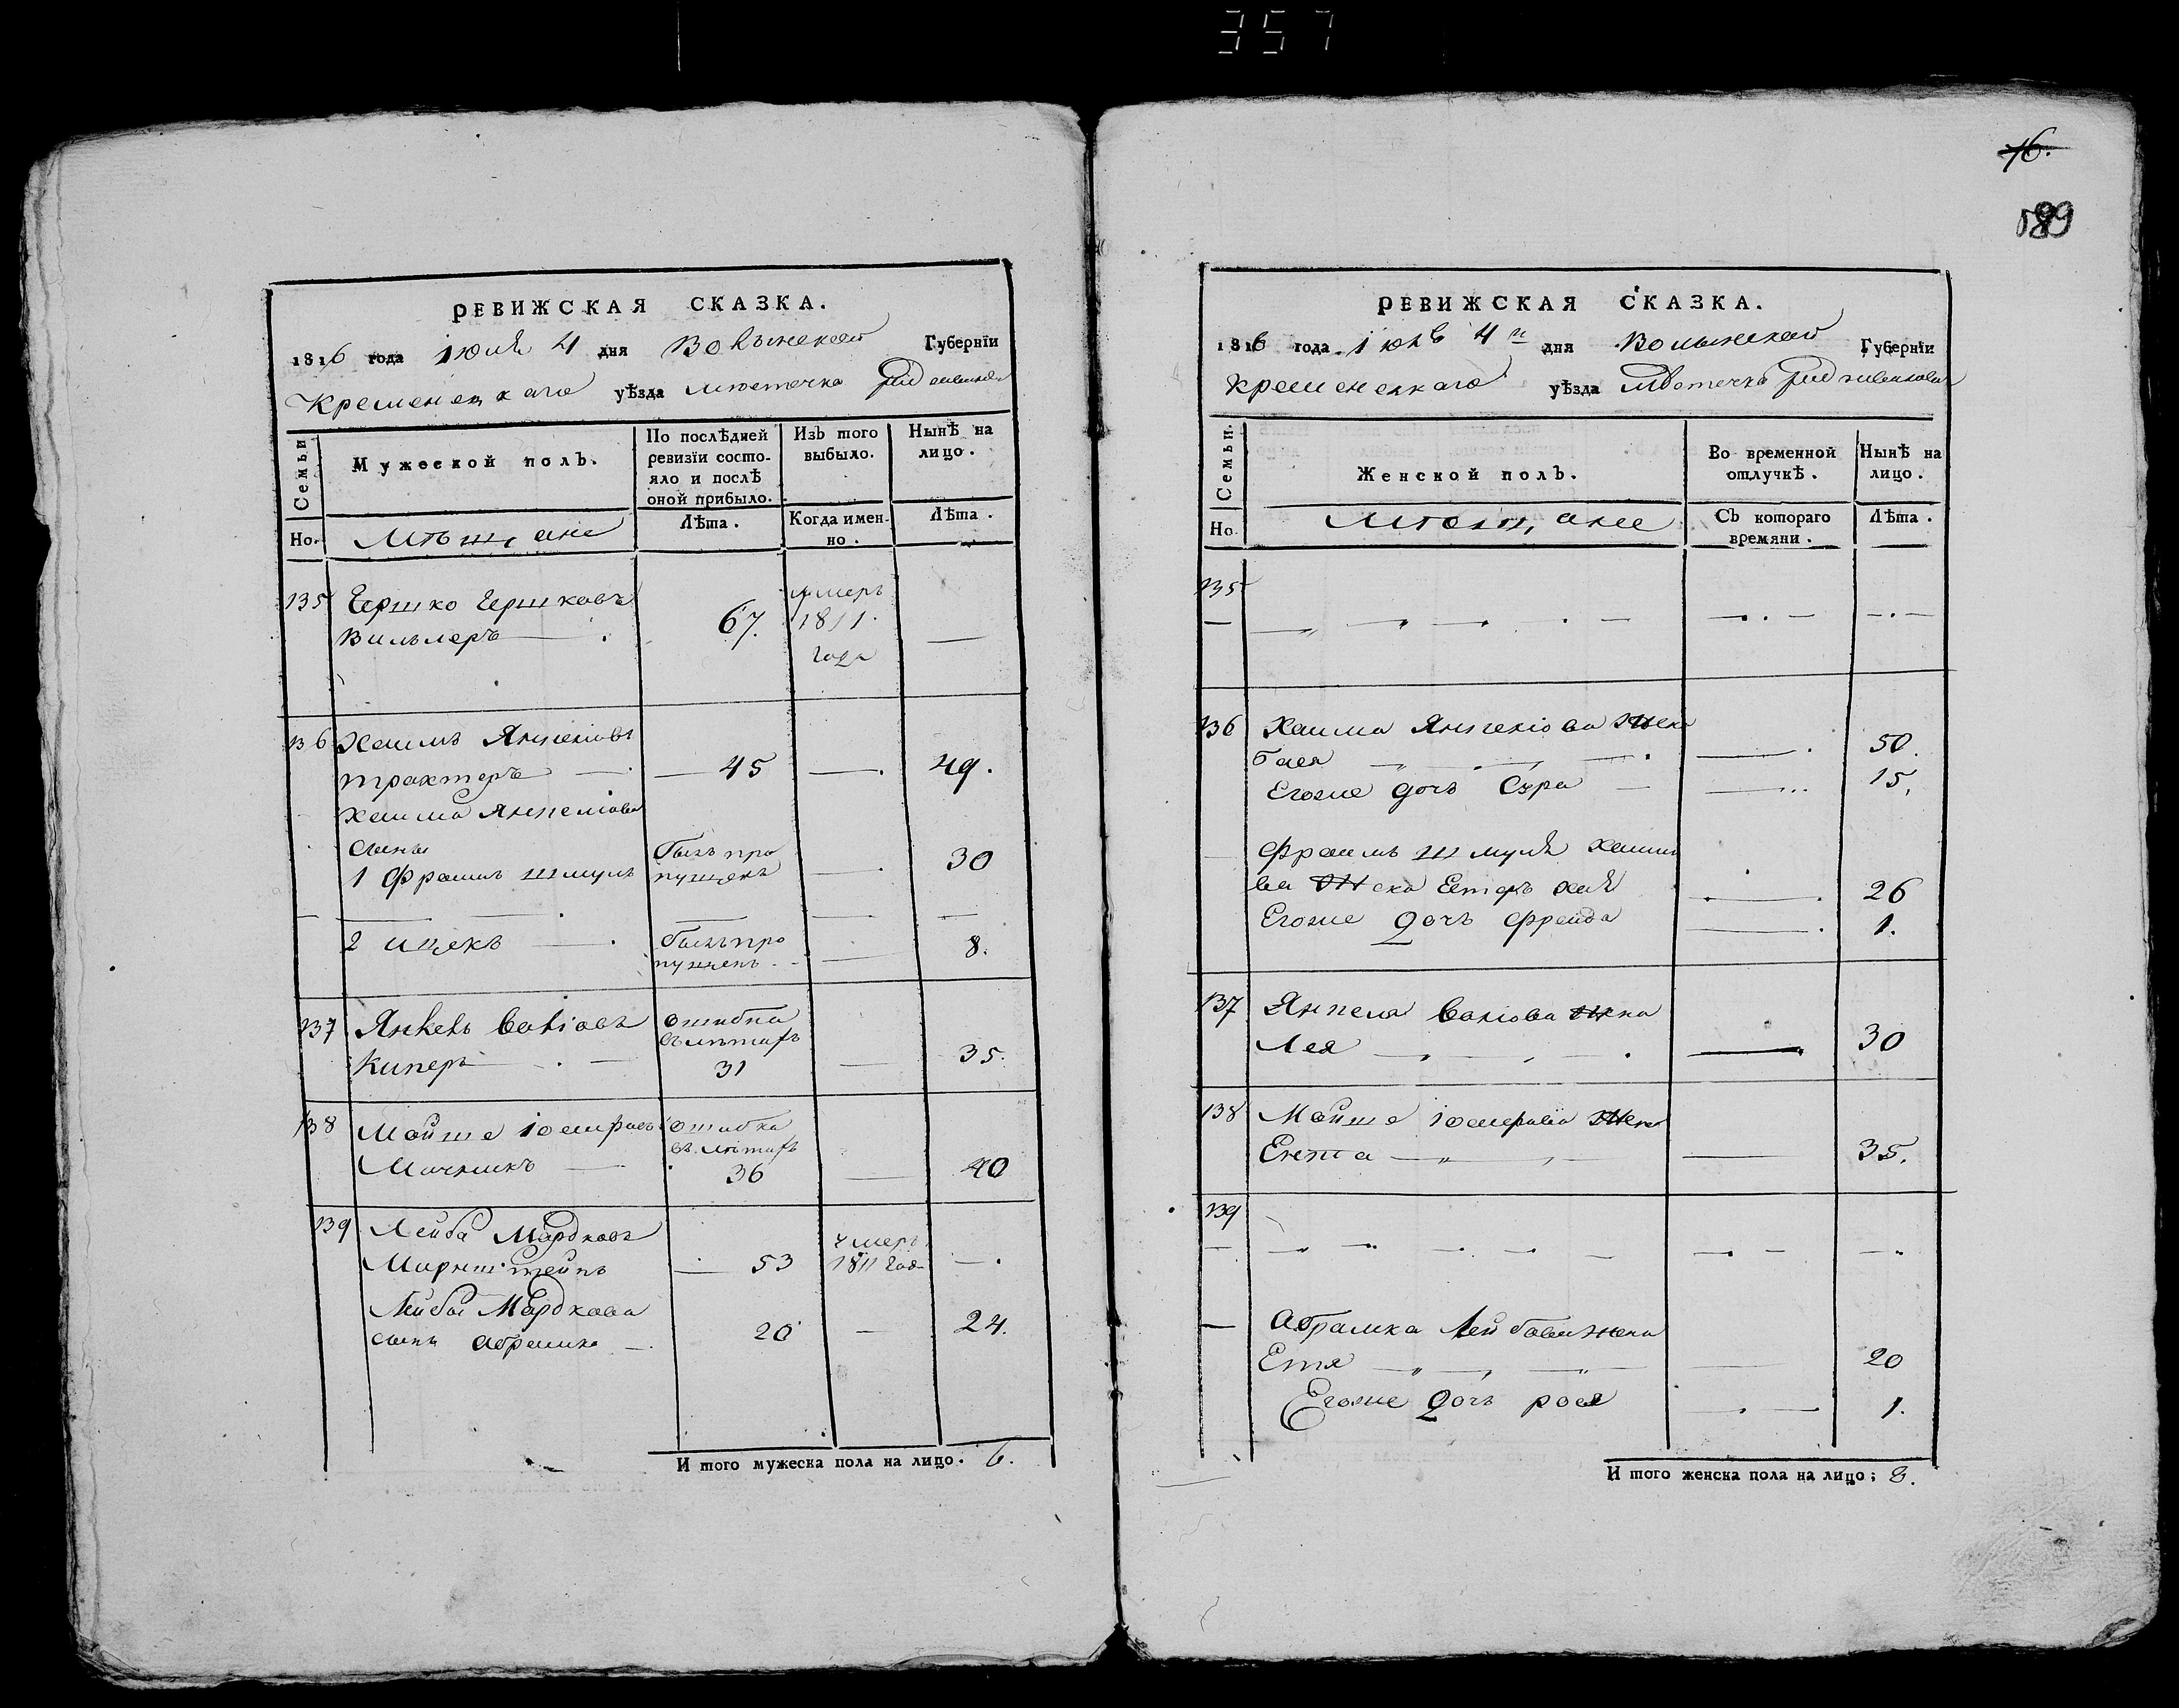 357
РЕВИЖСКАЯ СКАЗКА.
1816 года Июля 4 дня Волынской Губернїи
Кременецкаго уѣзда местечка
Семьи
Мужеской полъ.
По послѣдней ревизїи состо-
яло и послѣ оной прибыло.
Изъ того выбыло.
Нынѣ на лицо.
Но. Мѣщане
Лѣта. Когда имен-
но. Лѣта.
135 Гершко Гершковъ
Вильмеръ 67. умеръ 1811. года —
136 Хаимъ Янкелiовъ
трахтеръ — 45 — 49.
Хаима Янкелiова
сыны
1 Фраимъ Шмуль былъ про
пущенъ — 30
2 Ицекъ — былъ про
пущенъ — 8.
137 Янкель Волiовъ ошибка
въ летахъ
Киперъ — 31 — 35.
138 Мойше Iосифовъ ошибка
въ летахъ
Мичникъ — 36 — 40
139 Лейба Мордковъ
Мирнштейнъ — 53 умеръ 1811 года —
Лейбы Мордкова
сынъ Абрамко — 20 — 24.
И того мужеска пола на лицо. 6.
16.
189
РЕВИЖСКАЯ СКАЗКА.
1816 года Июль 4 дня Волынской Губернїи
Кременецкаго уѣзда местечка
Семьи.
Женской полъ.
Во временной отлучкѣ.
Нынѣ на лицо.
Но. Мѣщане
Съ котораго времяни.
Лѣта.
135
136 Хаима Янкелiова жена
Бася — 50.
Егоже дочь Сура — 15.
Фраимъ Шмуля Хаимо
ва жена Естеръ Хая — 26
Егоже дочь Фрейда — 1.
137 Янкеля Волiова жена
Лея — 30
138 Мойше Iосифова жена
Ента — 35.
139
Абрамка Лейбова жена
Етя — 20
Егоже дочь Рося — 1.
И того женска пола на лицо; 8.